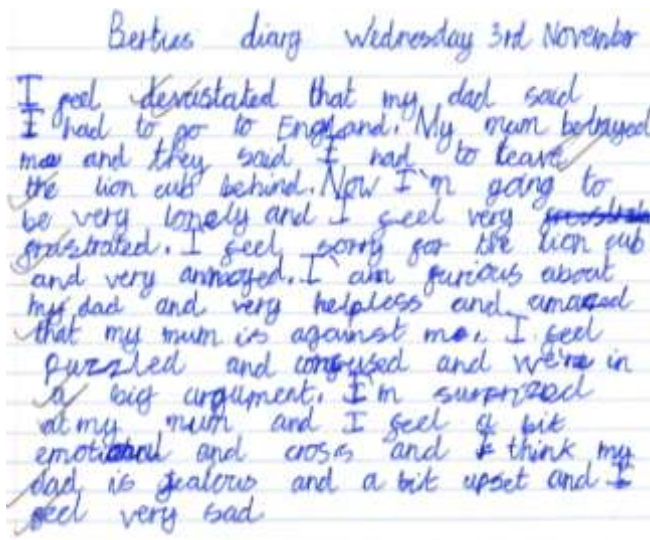 Berties diary Wednesday 3rd November
I feel devastated that my dad said
I had to go to England. My mum betrayed
me and they said I had to leave
the lion cub behind. Now I'm going to
be very lonely and I feel very
frastrated. I feel sorry for the lion cub
and very annoyed. I'am furious about
my dad and very helpless and amazed
that my mum is against me. I feel
puzzled and confused and we're in
a big argument. I'm surprized
at my mum and I feel a bit
emotional and cross and I think my
dad is jealous and a bit upset and I
feel very sad